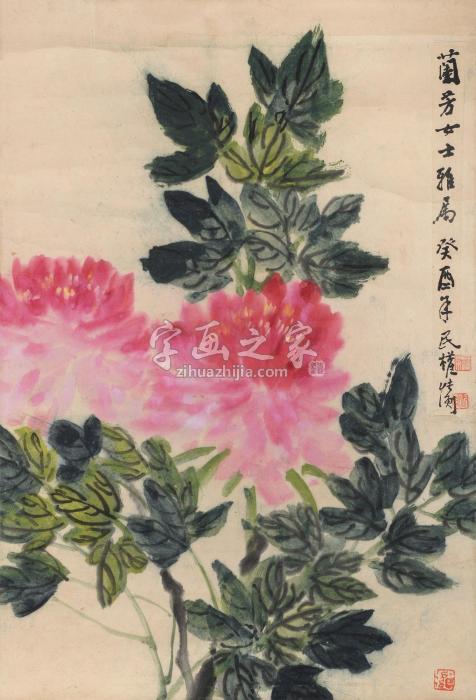 蘭芳女士雅属 癸酉年 民權
字画之家
www.zihuazhijia.com